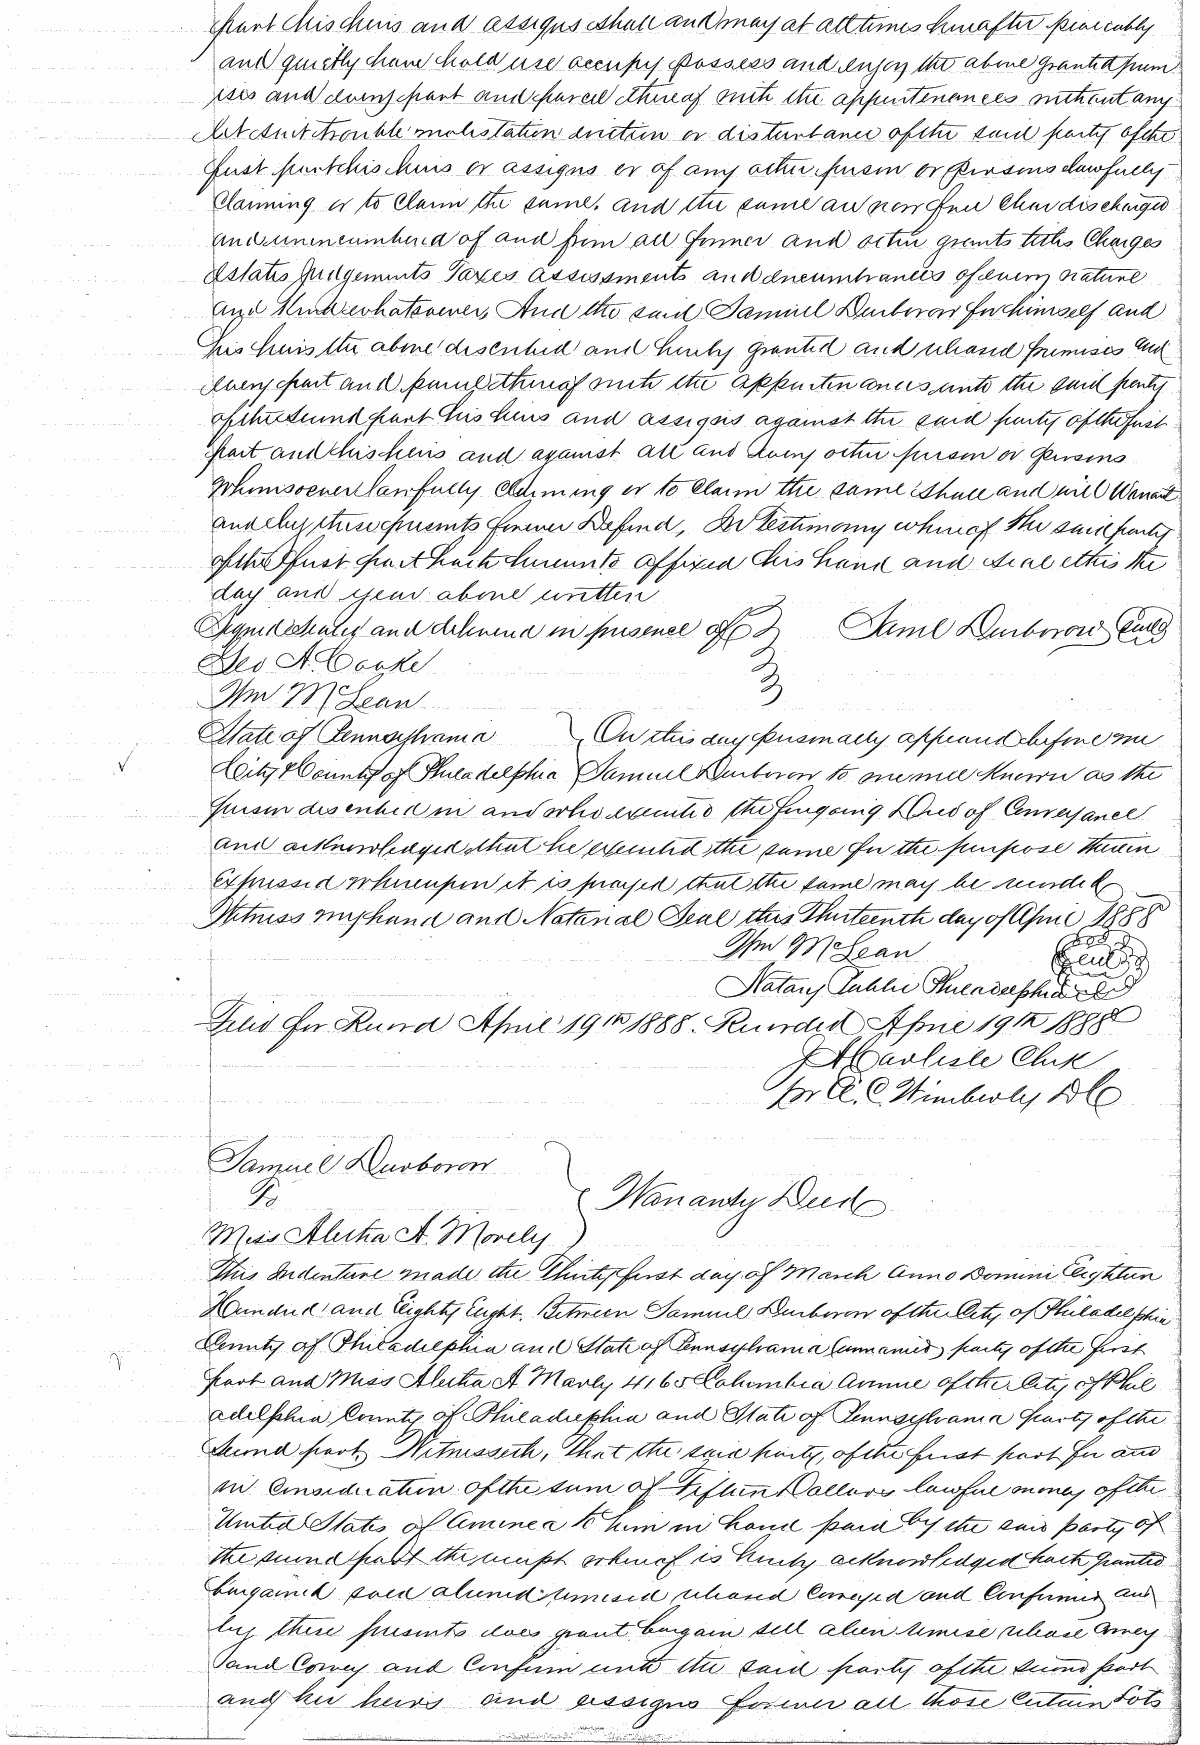 part his heirs and assigns shall and may at all times hereafter peaceably
and quietly have hold use occupy possess and enjoy the above granted prem
ises and every part and parcel thereof with the appurtenances without any
let suit trouble molestation eviction or disturbance of the said party of the
first part his heirs or assigns or of any other person or persons lawfully
Claiming or to Claim the same. and the same are now free Clear discharged
and unencumbered of and from all former and other grants titles Charges
Estates Judgements Taxes assessments and encumbrances of every nature
and kind whatsoever, And the said Samuel Durborow for himself and
his heirs the above described and hereby granted and released premises and
every part and parcel thereof with the appurtenances unto the said party
of the second part his heirs and assigns against the said party of the first
part and his heirs and against all and every other person or persons
Whomsoever lawfully Claiming or to Claim the same shall and will Warrant
and by these presents forever Defend, In Testimony whereof the said party
of the first part hath hereunto affixed his hand and seal this the
day and year above written
Signed sealed and delivered in presence of Saml Durborow Seal
Geo A. Cooke
Wm McLean
State of Pennsylvania On this day personally appeared before me
City & County of Philadelphia Samuel Durborow to me well known as the
person described in and who executed the foregoing Deed of Conveyance
and acknowledged that he executed the same for the purpose therein
expressed whereupon it is prayed that the same may be recorded
Witness my hand and Notarial Seal this Thirteenth day of April 1888
Wm McLean Seal
Notary Public Philadelphia
Filed for Record April 19th 1888. Recorded April 19th 1888
J A Carlisle Clerk
pr A. C. Wimberly DC
Samuel Durborow
To Warranty Deed
Miss Aletha A. Movely
This Indenture made the Thirty first day of March Anno Domini Eighteen
Hundred and Eighty Eight. Between Samuel Durborow of the City of Philadelphia
County of Philadelphia and State of Pennsylvania (unmarried) party of the first
part and Miss Aletha A Marly 4165 Columbia Avenue of the City of Phil
adelphia County of Philadelphia and State of Pennsylvania party of the
second part, Witnesseth, That the said party, of the first part for and
in Consideration of the sum of Fifteen Dollars lawful money of the
United States of America to him in hand paid by the said party of
the second part the receipt whereof is hereby acknowledged hath granted
bargained sold aliened remised released Conveyed and Confirmed and
by these presents does grant bargain sell alien remise release Convey
and Convey and Confirm unto the said party of the second part
and her heirs and assigns forever all those Certain Lots